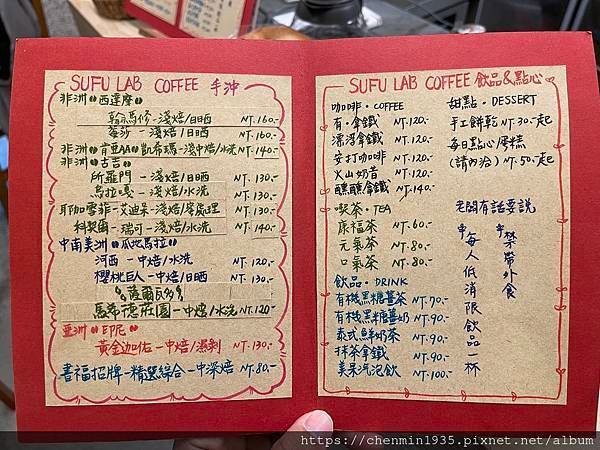 SUFU LAB COFFEE 手沖
非洲《西達摩》
翡冷馬修-淺焙/日晒 NT.160-
薇莎-淺焙/日晒 NT.160-
非洲《肯亞AA》凱希瑪-淺中焙/水洗 NT.140-
非洲《古吉》
所羅門-淺焙/日晒 NT.130-
烏拉嘎-淺焙/水洗 NT.130-
耶加雪菲-艾迪朵-淺焙/處理 NT.130-
科契爾-瑞可-淺焙/水洗 NT.130-
中南美洲《瓜地馬拉》
河西-中焙/水洗 NT.120-
櫻桃巨人-中焙/日晒 NT.130-
《薩爾瓦多》
馬希德莊園-中焙/水洗 NT.120-
亞洲《印尼》
黃金迦佑-中焙/濕剝 NT.130-
書福招牌-精選綜合-中深焙 NT.80-
SUFU LAB COFFEE 飲品&點心
咖啡·COFFEE
有·拿鐵 NT.120-
漂浮拿鐵 NT.120-
安打咖啡 NT.120-
火山奶昔 NT.120-
醺醺拿鐵 NT.140-
喫茶·TEA
康福茶 NT.60-
元氣茶 NT.80-
口氣茶 NT.80-
飲品·DRINK
有機黑糖薑茶 NT.70-
有機黑糖薑奶 NT.90-
泰式鮮奶茶 NT.90-
抹茶拿鐵 NT.90-
美果汽泡飲 NT.100-
甜點·DESSERT
手工餅乾 NT.30-起
每日點心/蛋糕
(請內洽) NT.50-起
老闆有話要說
禁帶外食
每人低消限飲品一杯
https://chenmin1935.pixnet.net/album